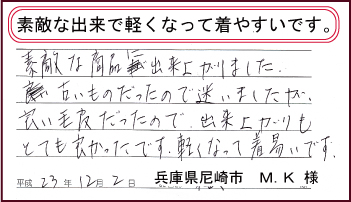 素敵な出来で軽くなって着やすいです。
素敵な商品に出来上がりました。
古いものだったので迷いましたが、
良い毛皮だったので、出来上がりも
とても良かったです。軽くなって着易いです。
平成23年12月2日 兵庫県尼崎市 M.K 様